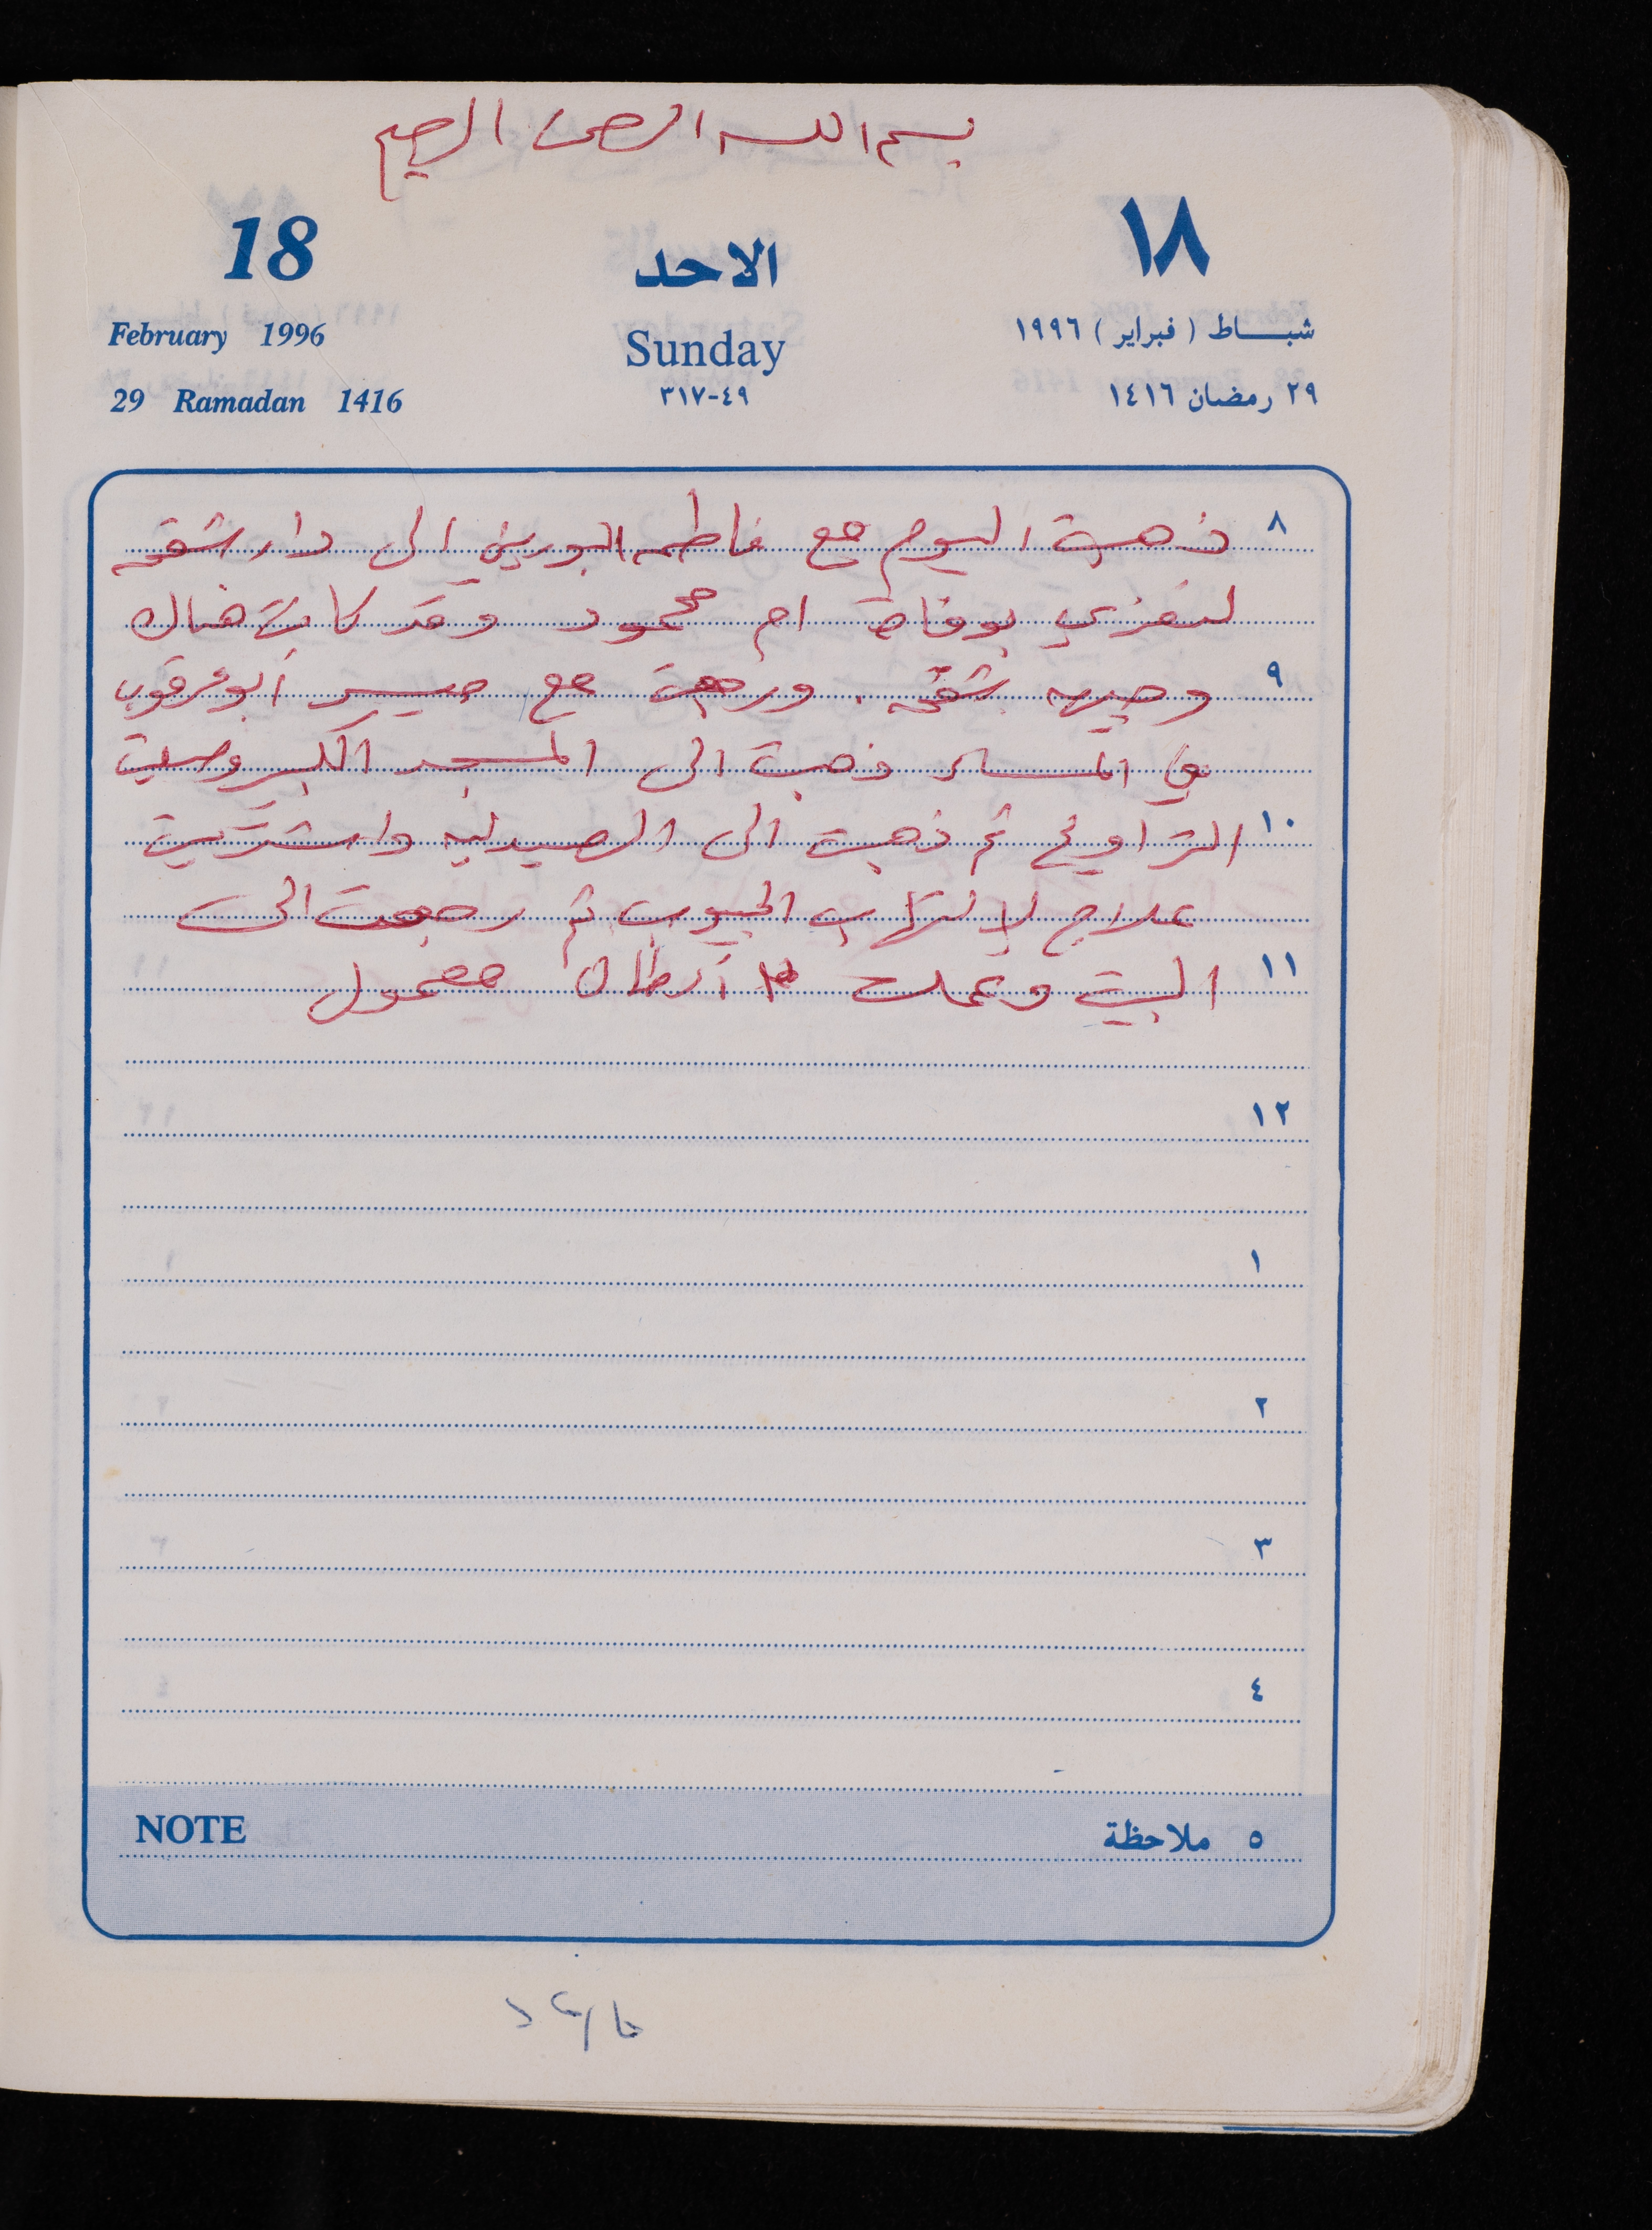 بسم الله الرحمن الرحيم
18 الاحد ١٨
February 1996 Sunday شبـاط ( فبراير ) ١٩٩٦
29 Ramadan 1416 ٤٩-٣١٧ ٢٩ رمضان ١٤١٦
٨ ذهبت اليوم مع فاطمه البوريني الى دار شقحه
لنعزي بوفاة ام محمود وقد كانت هناك
٩ وجيهه شقحه . ورجعت مع ابو عرقوب
في المساء ذهبت الى المسجد الكبير وصليت
١٠ التراويح ثم ذهبت الى الصيدليه واشتريت
علاج لإلتهاب الجيوب ثم رجعت الى
١١ البيت وعملت ٣ أرطال معمول
١٢
١
٢
٣
٤
NOTE ٥ ملاحظة